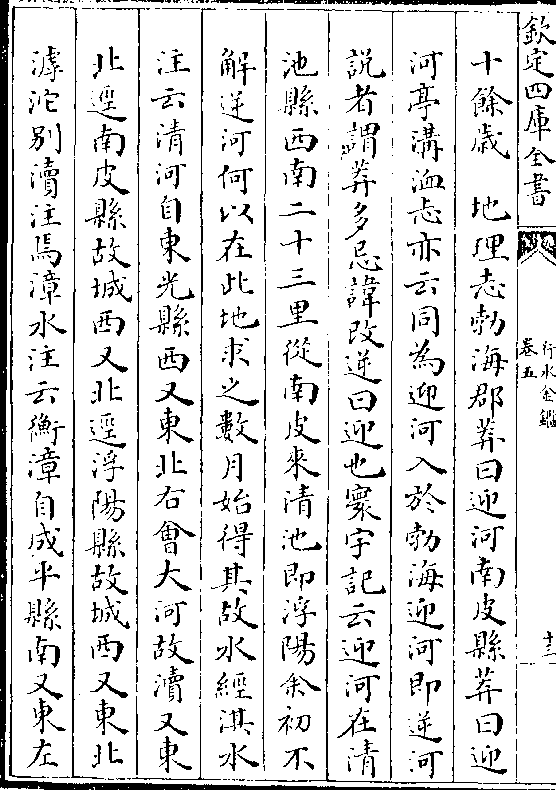 欽定四庫全書
行水金鑑
卷五
十三
十餘歲　地理志勃海郡莽曰迎河南皮縣莽曰迎
河亭溝洫志亦云同為迎河入於勃海迎河即逆河
説者謂莽多忌諱改逆曰迎也寰宇記云迎河在清
池縣西南二十三里從南皮來清池即浮陽余初不
解逆河何以在此地求之數月始得其故水經淇水
注云清河自東光縣西又東北右會大河故瀆又東
北逕南皮縣故城西又北逕浮陽縣故城西又東北
滹沱别瀆注焉漳水注云衡漳自成平縣南又東左